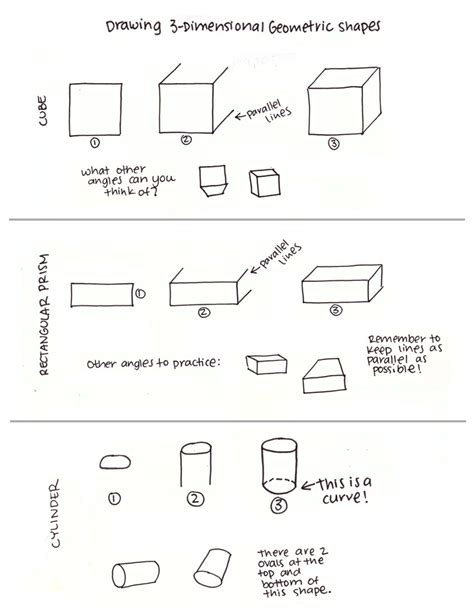 Drawing 3-Dimensional Geometric Shapes
CUBE
① ② ③
←parallel
lines
what other
angles can you
think of?
RECTANGULAR PRISM
① ② ③
←parallel
lines
Other angles to practice:
Remember to
keep lines as
parallel as
possible!
CYLINDER
① ② ③
←this is a
curve!
there are 2
ovals at the
top and
bottom of
this shape.